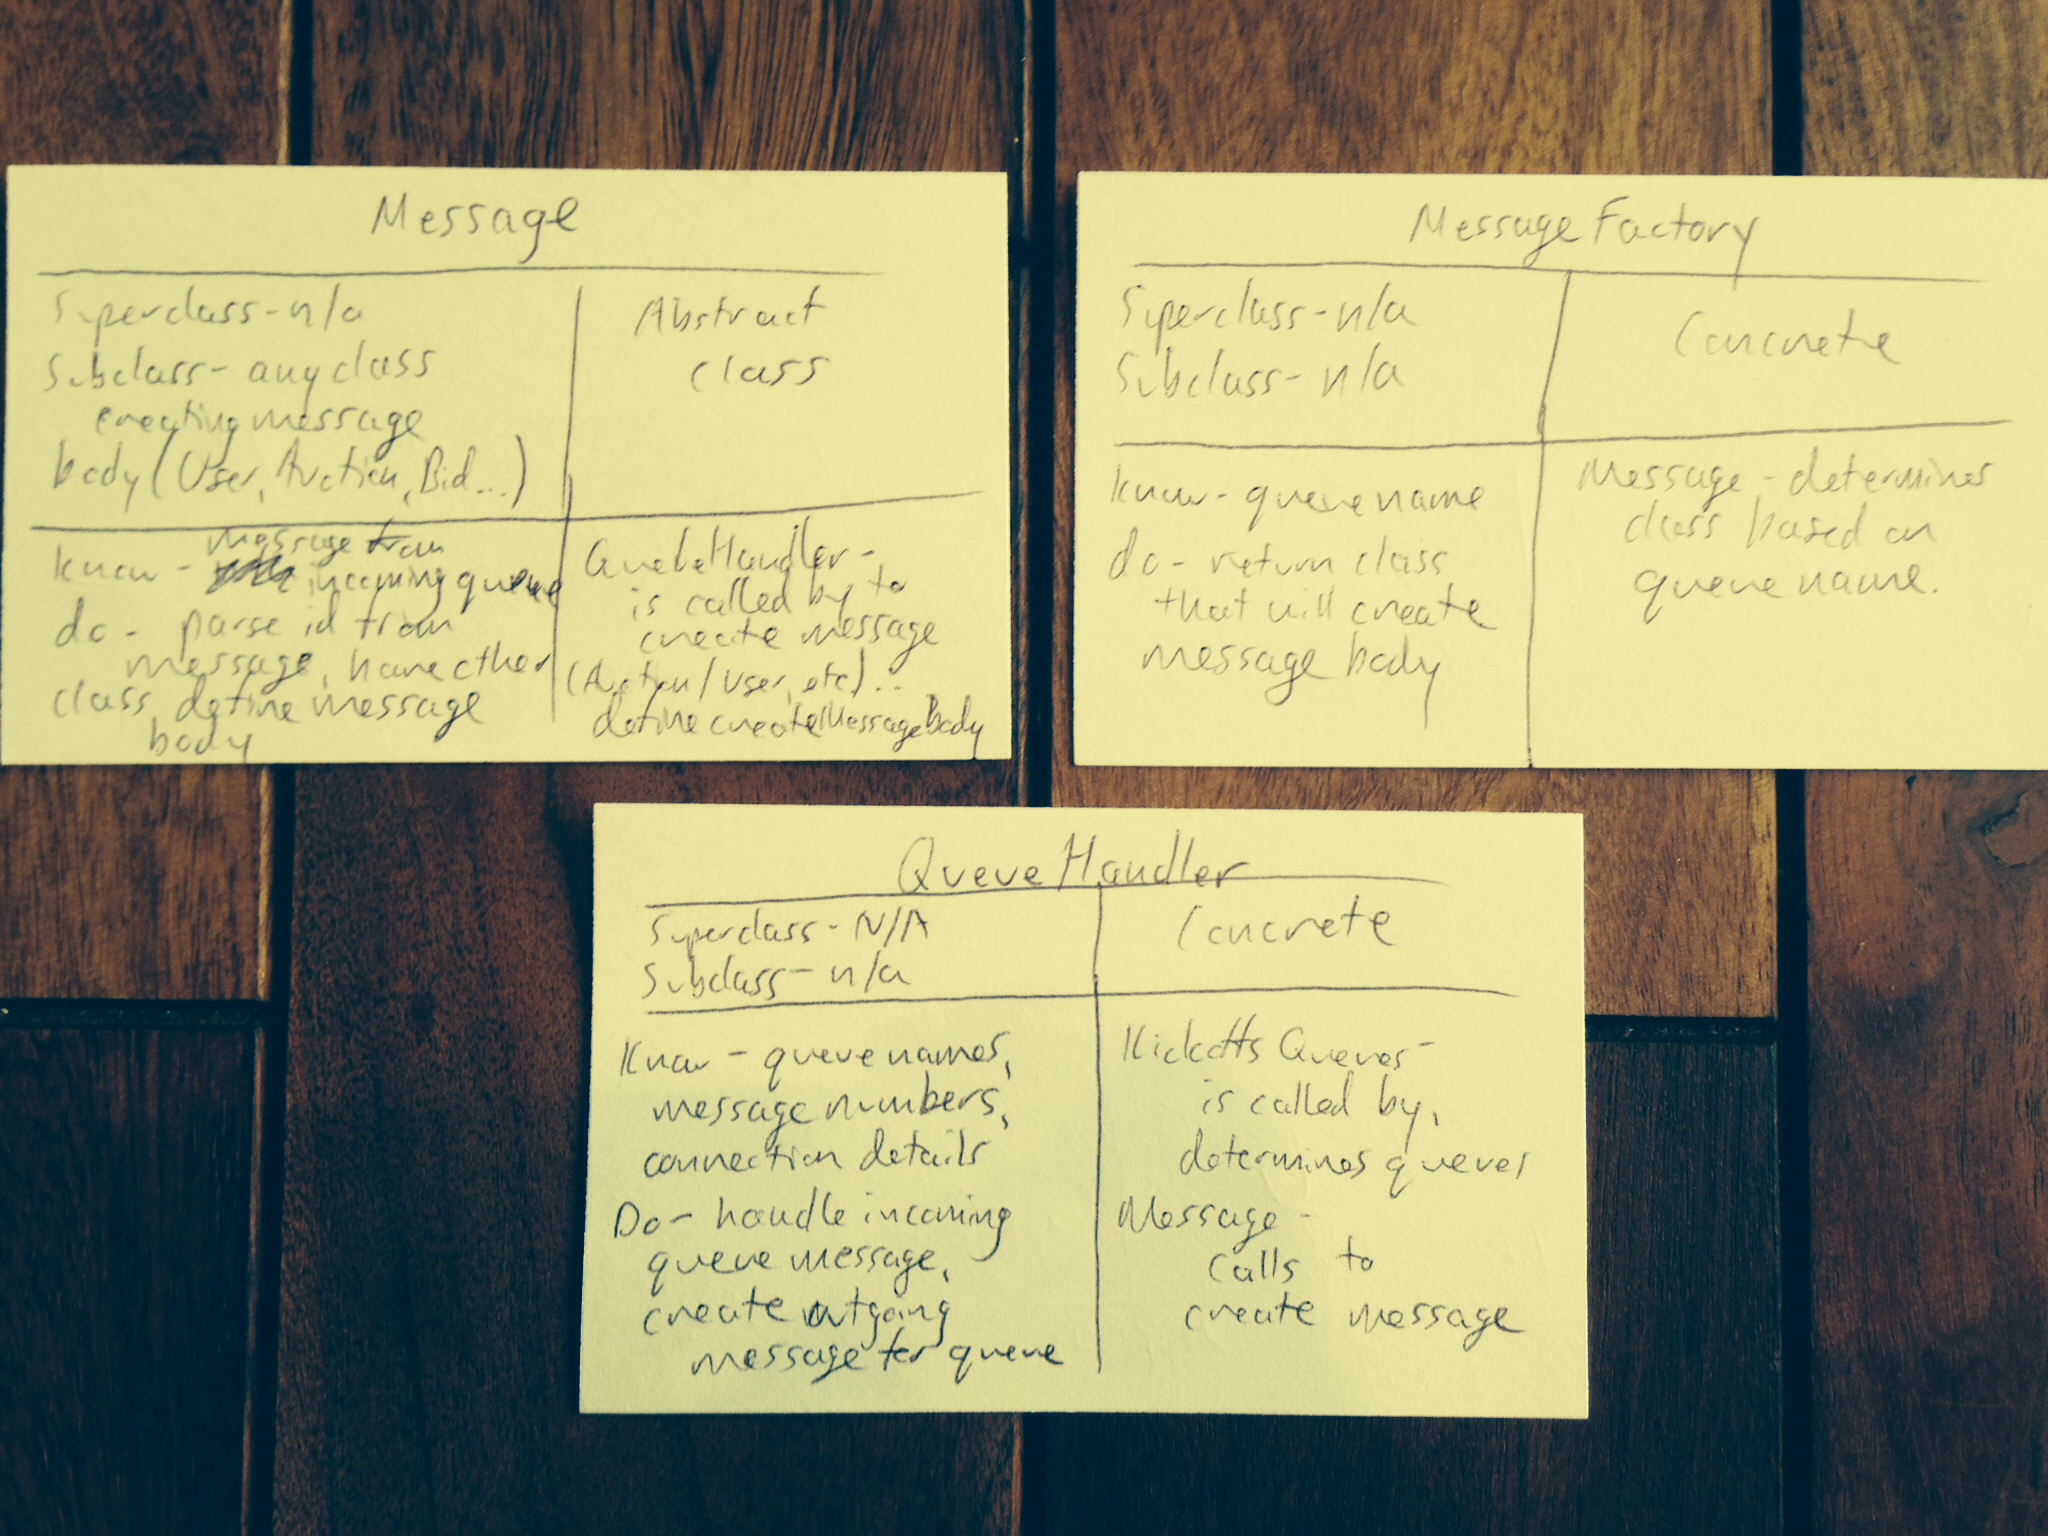 Message
Superclass - n/a
Subclass - any class
creating message
body (User, Auction, Bid...)
Abstract
class
Know - message from
incoming queue
do - parse id from
message, have other
class define message
body
QueueHandler -
is called by to
create message
(Auction/User, etc)..
define createMessageBody
MessageFactory
Superclass - n/a
Subclass - n/a
Concrete
Know - queue name
do - return class
that will create
message body
Message - determines
class based on
queue name.
QueueHandler
Superclass - N/A
Subclass - n/a
Concrete
Know - queue names,
message numbers,
connection details
Do - handle incoming
queue message,
create outgoing
message for queue
Kickoffs Queues -
is called by,
determines queues
Message -
calls to
create message